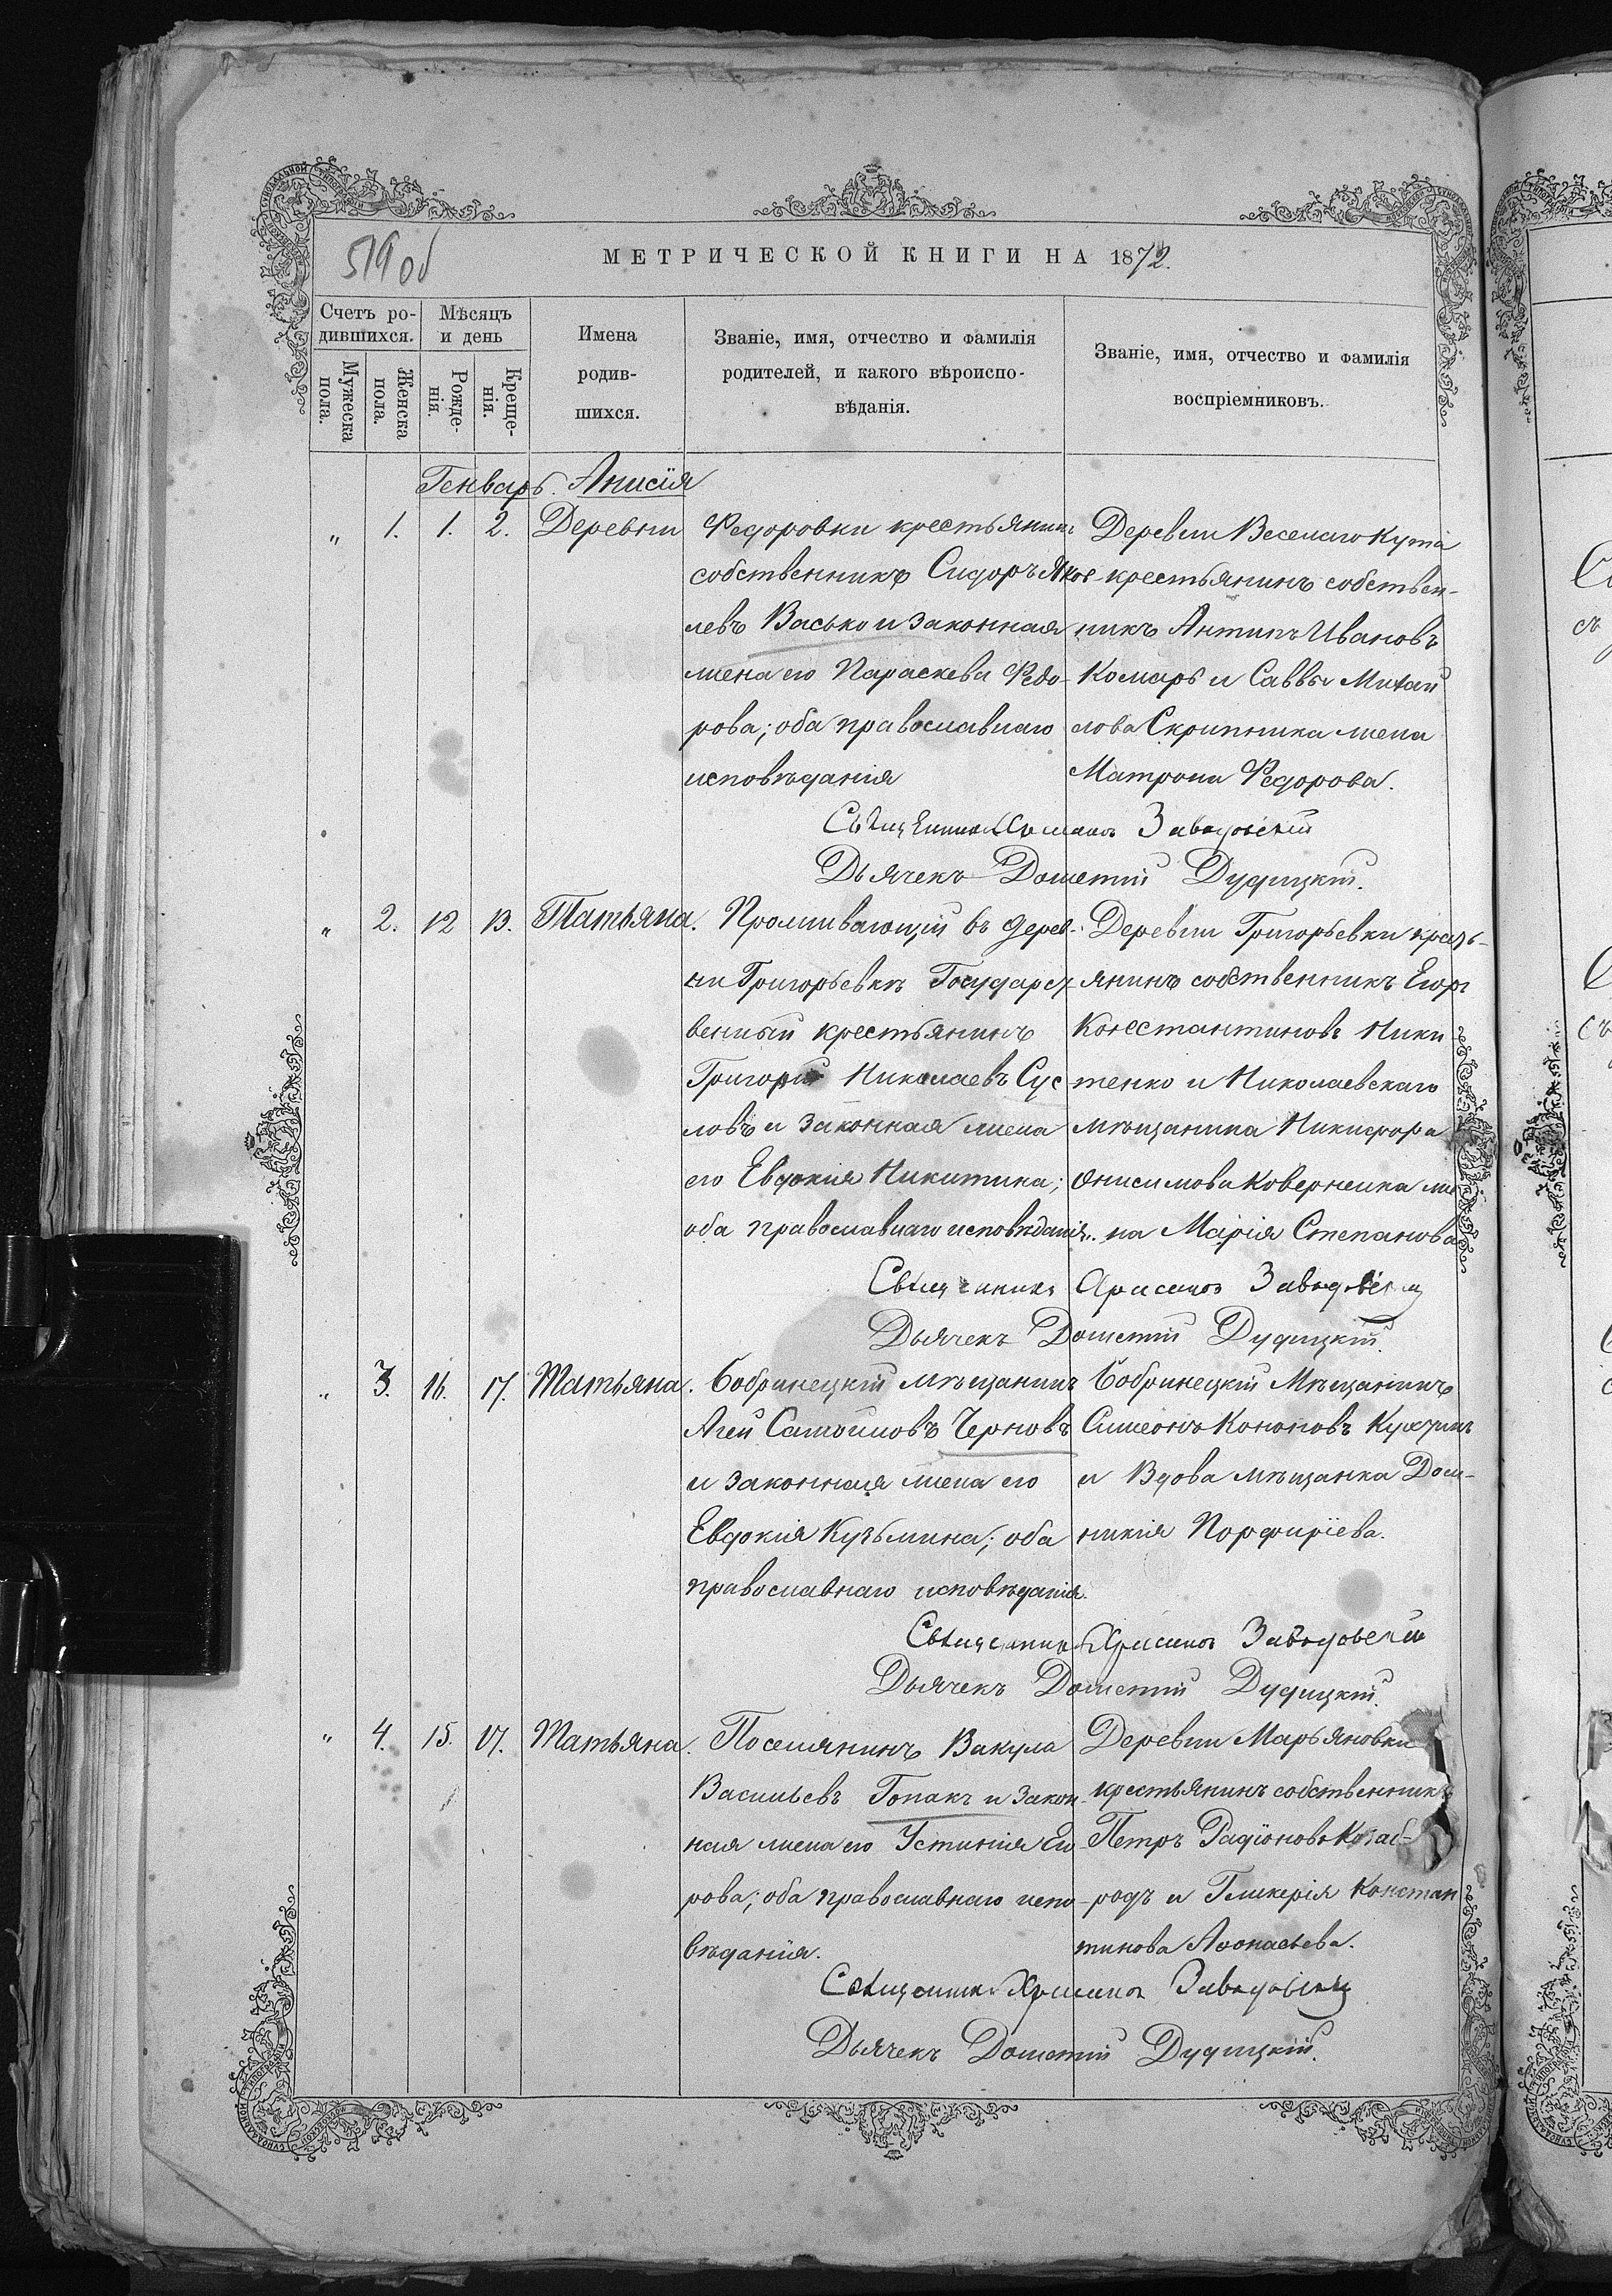 519 об
МЕТРИЧЕСКОЙ КНИГИ НА 1872.
Счетъ ро-
дившихся.
Мѣсяцъ
и день
Мужеска
пола.
Женска
пола.
Рожде-
нія.
Креще-
нія.
Имена
родив-
шихся.
Званіе, имя, отчество и фамилія
родителей, и какого вѣроиспо-
вѣданія.
Званіе, имя, отчество и фамилія
воспріемниковъ.
Генварь. Анисія
„ 1. 1. 2. Деревни Федоровки крестьянинъ
собственникъ Сидоръ Яков-
левъ Васько и законная
жена его Параскева Федо-
рова; оба православнаго
исповѣданія
Деревни Веселаго Кута
крестьянинъ собствен-
никъ Антипъ Ивановъ
Комаръ и Саввы Михаи
лова Скрипника жена
Матрона Федорова.
Священникъ Заводовскій
Дьячекъ Дометій Дудицкій.
„ 2. 12 13. Татьяна. Проживающій въ дерев-
ни Григорьевкѣ Государст
венный крестьянинъ
Григорій Николаевъ Сус
ловъ и законная жена
его Евдокія Никитина;
оба православнаго исповѣданія.
Деревни Григорьевки кресть-
янинъ собственникъ Егоръ
Константиновъ Ники
тенко и Николаевскаго
мѣщанина Никифора
Онисимова Коверненка же
на Марія Степанова
Священникъ Хрисанфъ Заводовскій
Дьячекъ Дометій Дудицкій.
„ 3. 16. 17. Татьяна. Бобринецкій мѣщанинъ
Агей Самойловъ Черновъ
и законная жена его
Евдокія Кузьмина; оба
православнаго исповѣданія.
Бобринецкій Мѣщанинъ
Симеонъ Кононовъ
и Вдова мѣщанка Дом-
никія Порфиріева.
Священникъ Хрисанфъ Заводовскій
Дьячекъ Дометій Дудицкій.
„ 4. 15. 17. Татьяна. Поселянинъ Вакула
Васильевъ Гопакъ и закон-
ная жена его Устинія Его
рова; оба православнаго испо-
вѣданія.
Деревни Марьяновки
крестьянинъ собственникъ
Петръ Радіоновъ
родъ и Гликерія Констан
тинова Аѳонасьева.
Священникъ Хрисанфъ Заводовскій
Дьячекъ Дометій Дудицкій.